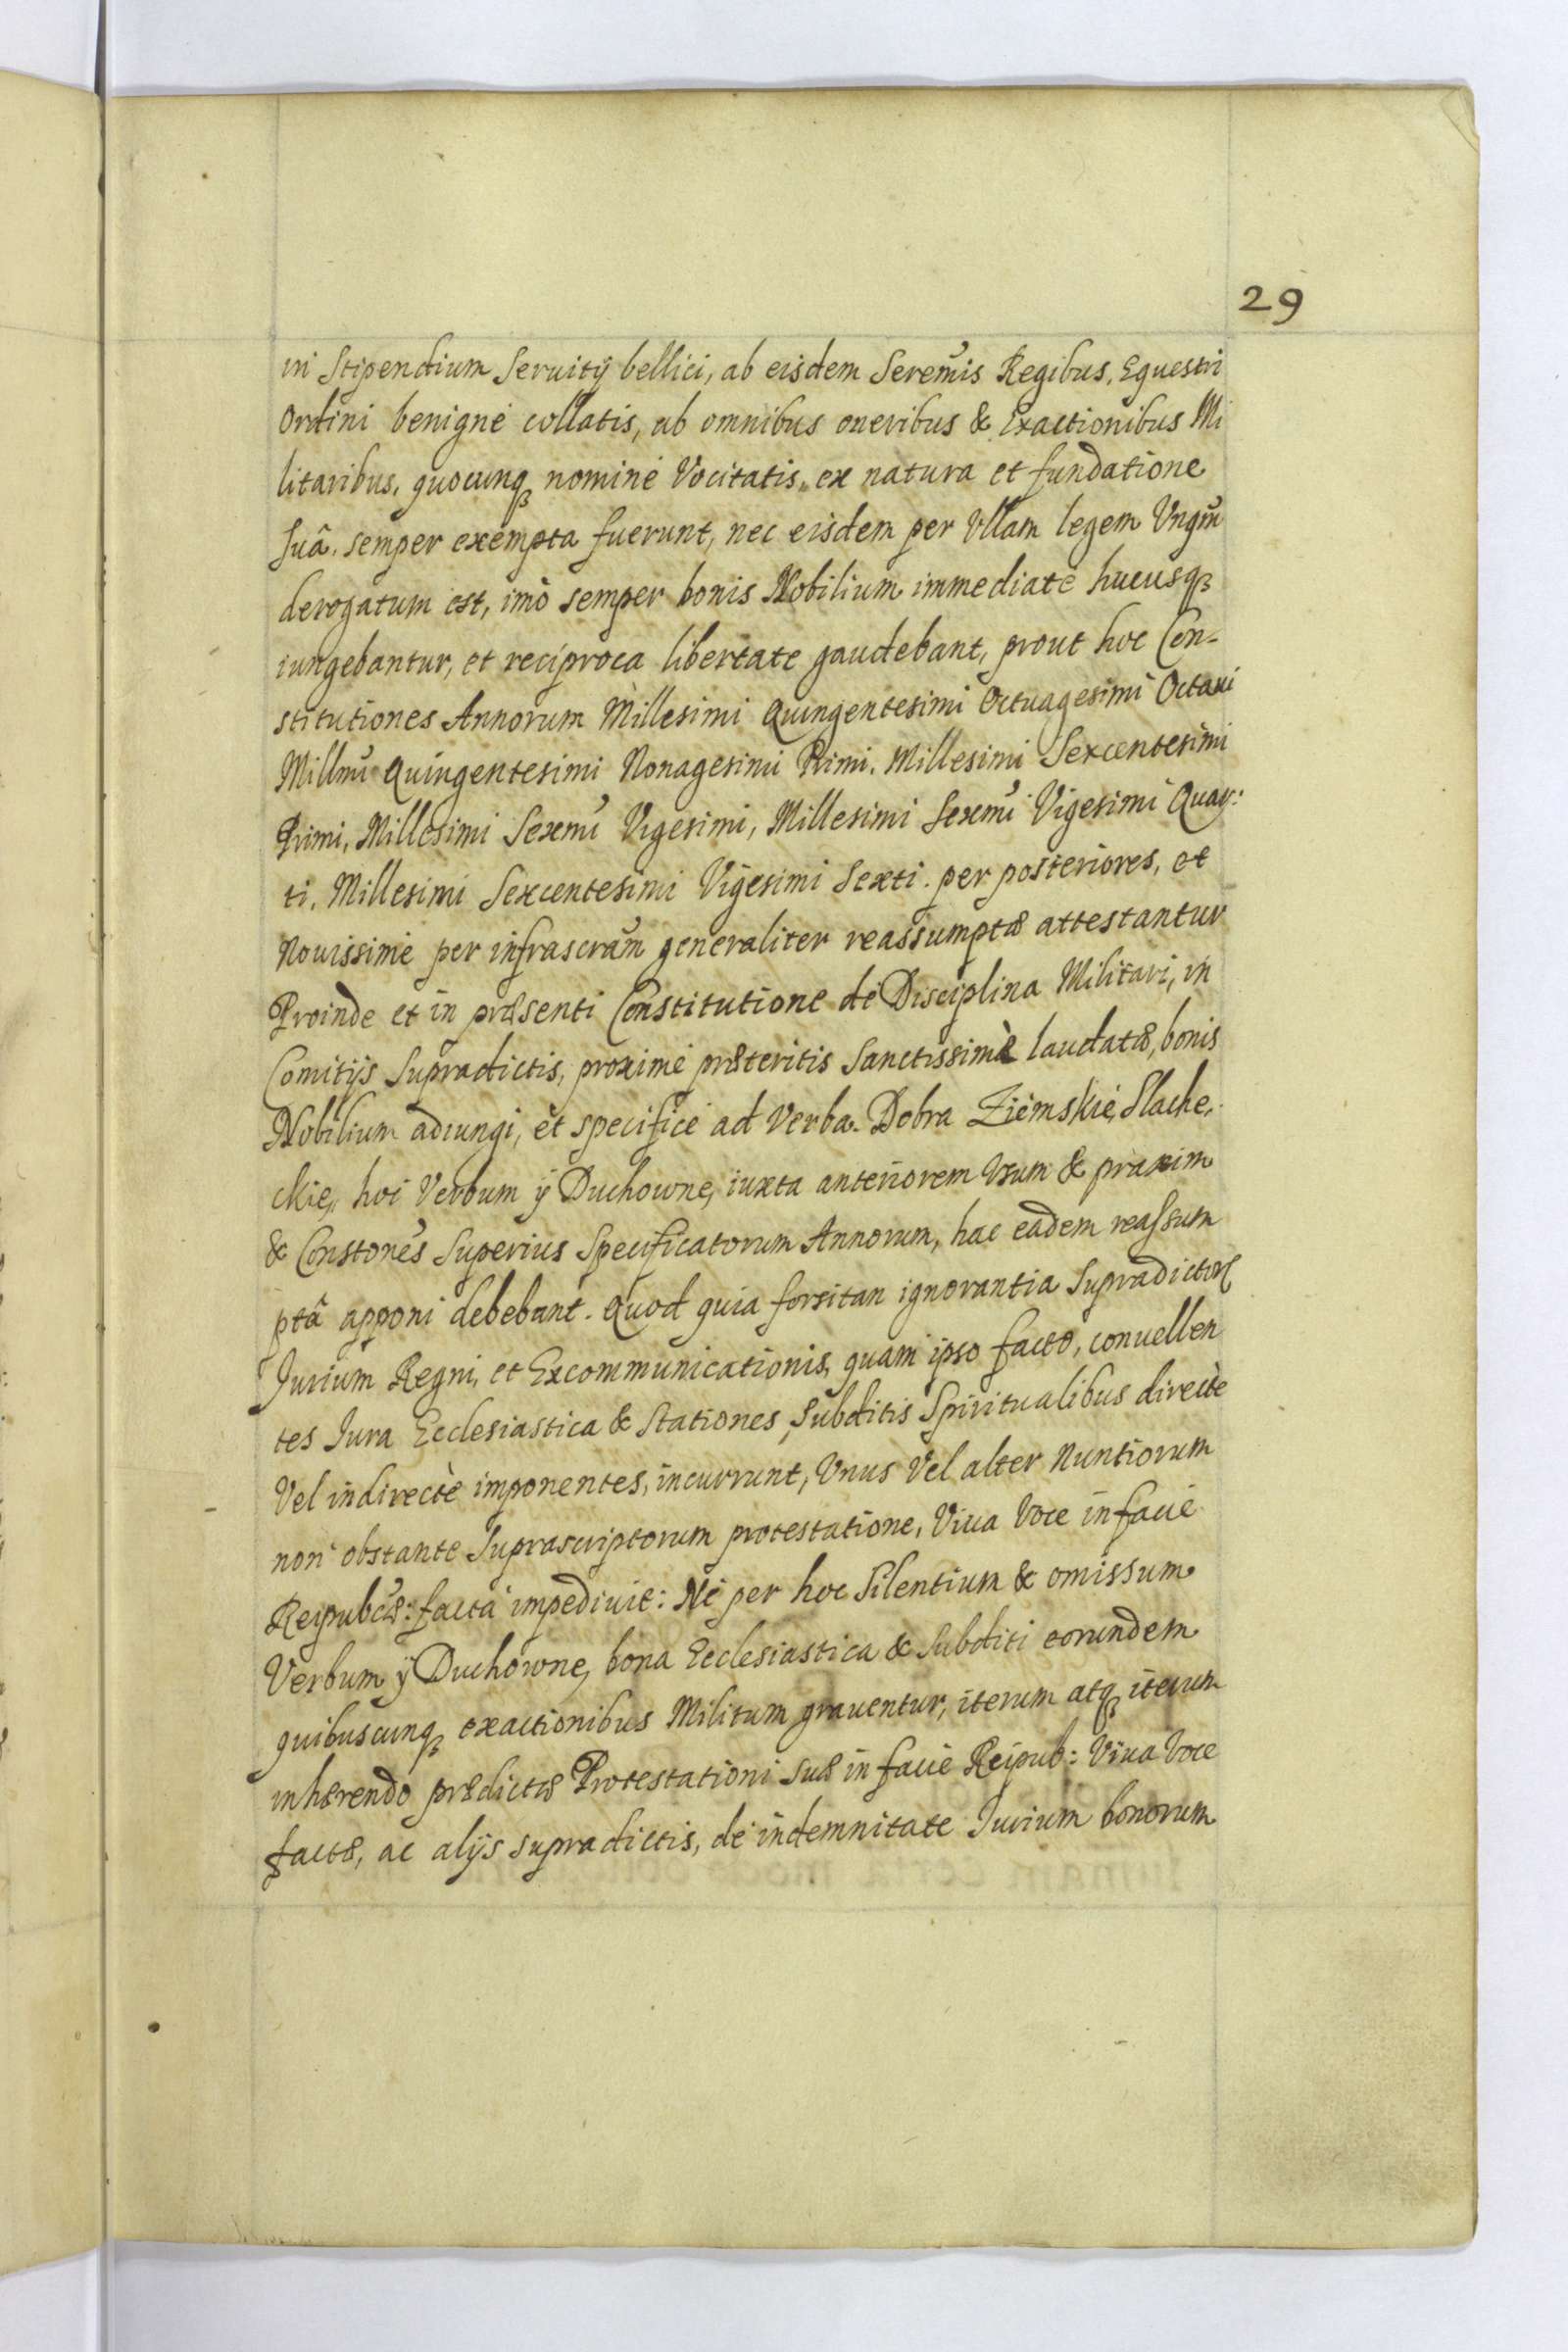 29
in Stipendium Seruitÿ bellici, ab eisdem Seremis Regibus, Equestri
Ordini benigne collatis, ab omnibus oneribus & Exactionibus Mi
litaribus, quocunqꝫ nomine Vocitatis, ex natura et fundatione
suâ, semper exempta fuerunt, nec eisdem per Vllam legem Unqm̃
derogatum est, imò semper bonis Nobilium immediate hucusqꝫ
iungebantur, et reciproca libertate gaudebant, prout hoc Con-
stitutiones Annorum Millesimi Quingentesimi Octuagesimi Octaui
Millmi Quingentesimi Nonagesimi Primi, Millesimi Sexcentesimi
Primi, Millesimi Sexmi Vigesimi, Millesimi Sexmi Vigesimi Quar:
ti, Millesimi Sexcentesimi Vigesimi Sexti. per posteriores, et
Nouissime per infrascram generaliter reassumptæ attestantur
Proinde et in præsenti Constitutione de Disciplina Militari, in
Comitijs Supradictis, proxime præteritis Sanctissimè laudatæ, bonis
Nobilium adiungi, et specifice ad Verba. Dobra Ziemskie, Slache,
ckie, hoi Verbum ÿ Duchowne, iuxta anteriorem Vsum & praxim
& Constones Superius Specificatorum Annorum, hac eadem reassum
ptâ apponi debebant. Quod quia forsitan ignorantia Supradictorꝫ
Jurium Regni, et Excommunicationis, quam ipso facto, conuellen
tes Jura Ecclesiastica & Stationes, Subditis Spiritualibus directè
Vel indirectè imponentes, incurrunt, Vnus Vel alter Nuntiorum
non obstante Suprascriptorum protestatione, Viua Voce in facie
Reipubcæ: facta impediuit: Ne per hoc Silentium & omissum
Verbum ÿ Duchowne, bona Ecclesiastica & Subditi eorundem
quibuscunqꝫ exactionibus Militum grauentur, iterum atqꝫ iterum
inhærendo prædictæ Protestationi suæ in facie Reipub: Viua Voce
factæ, ac alÿs supradictis, de indemnitate Jurium bonorum